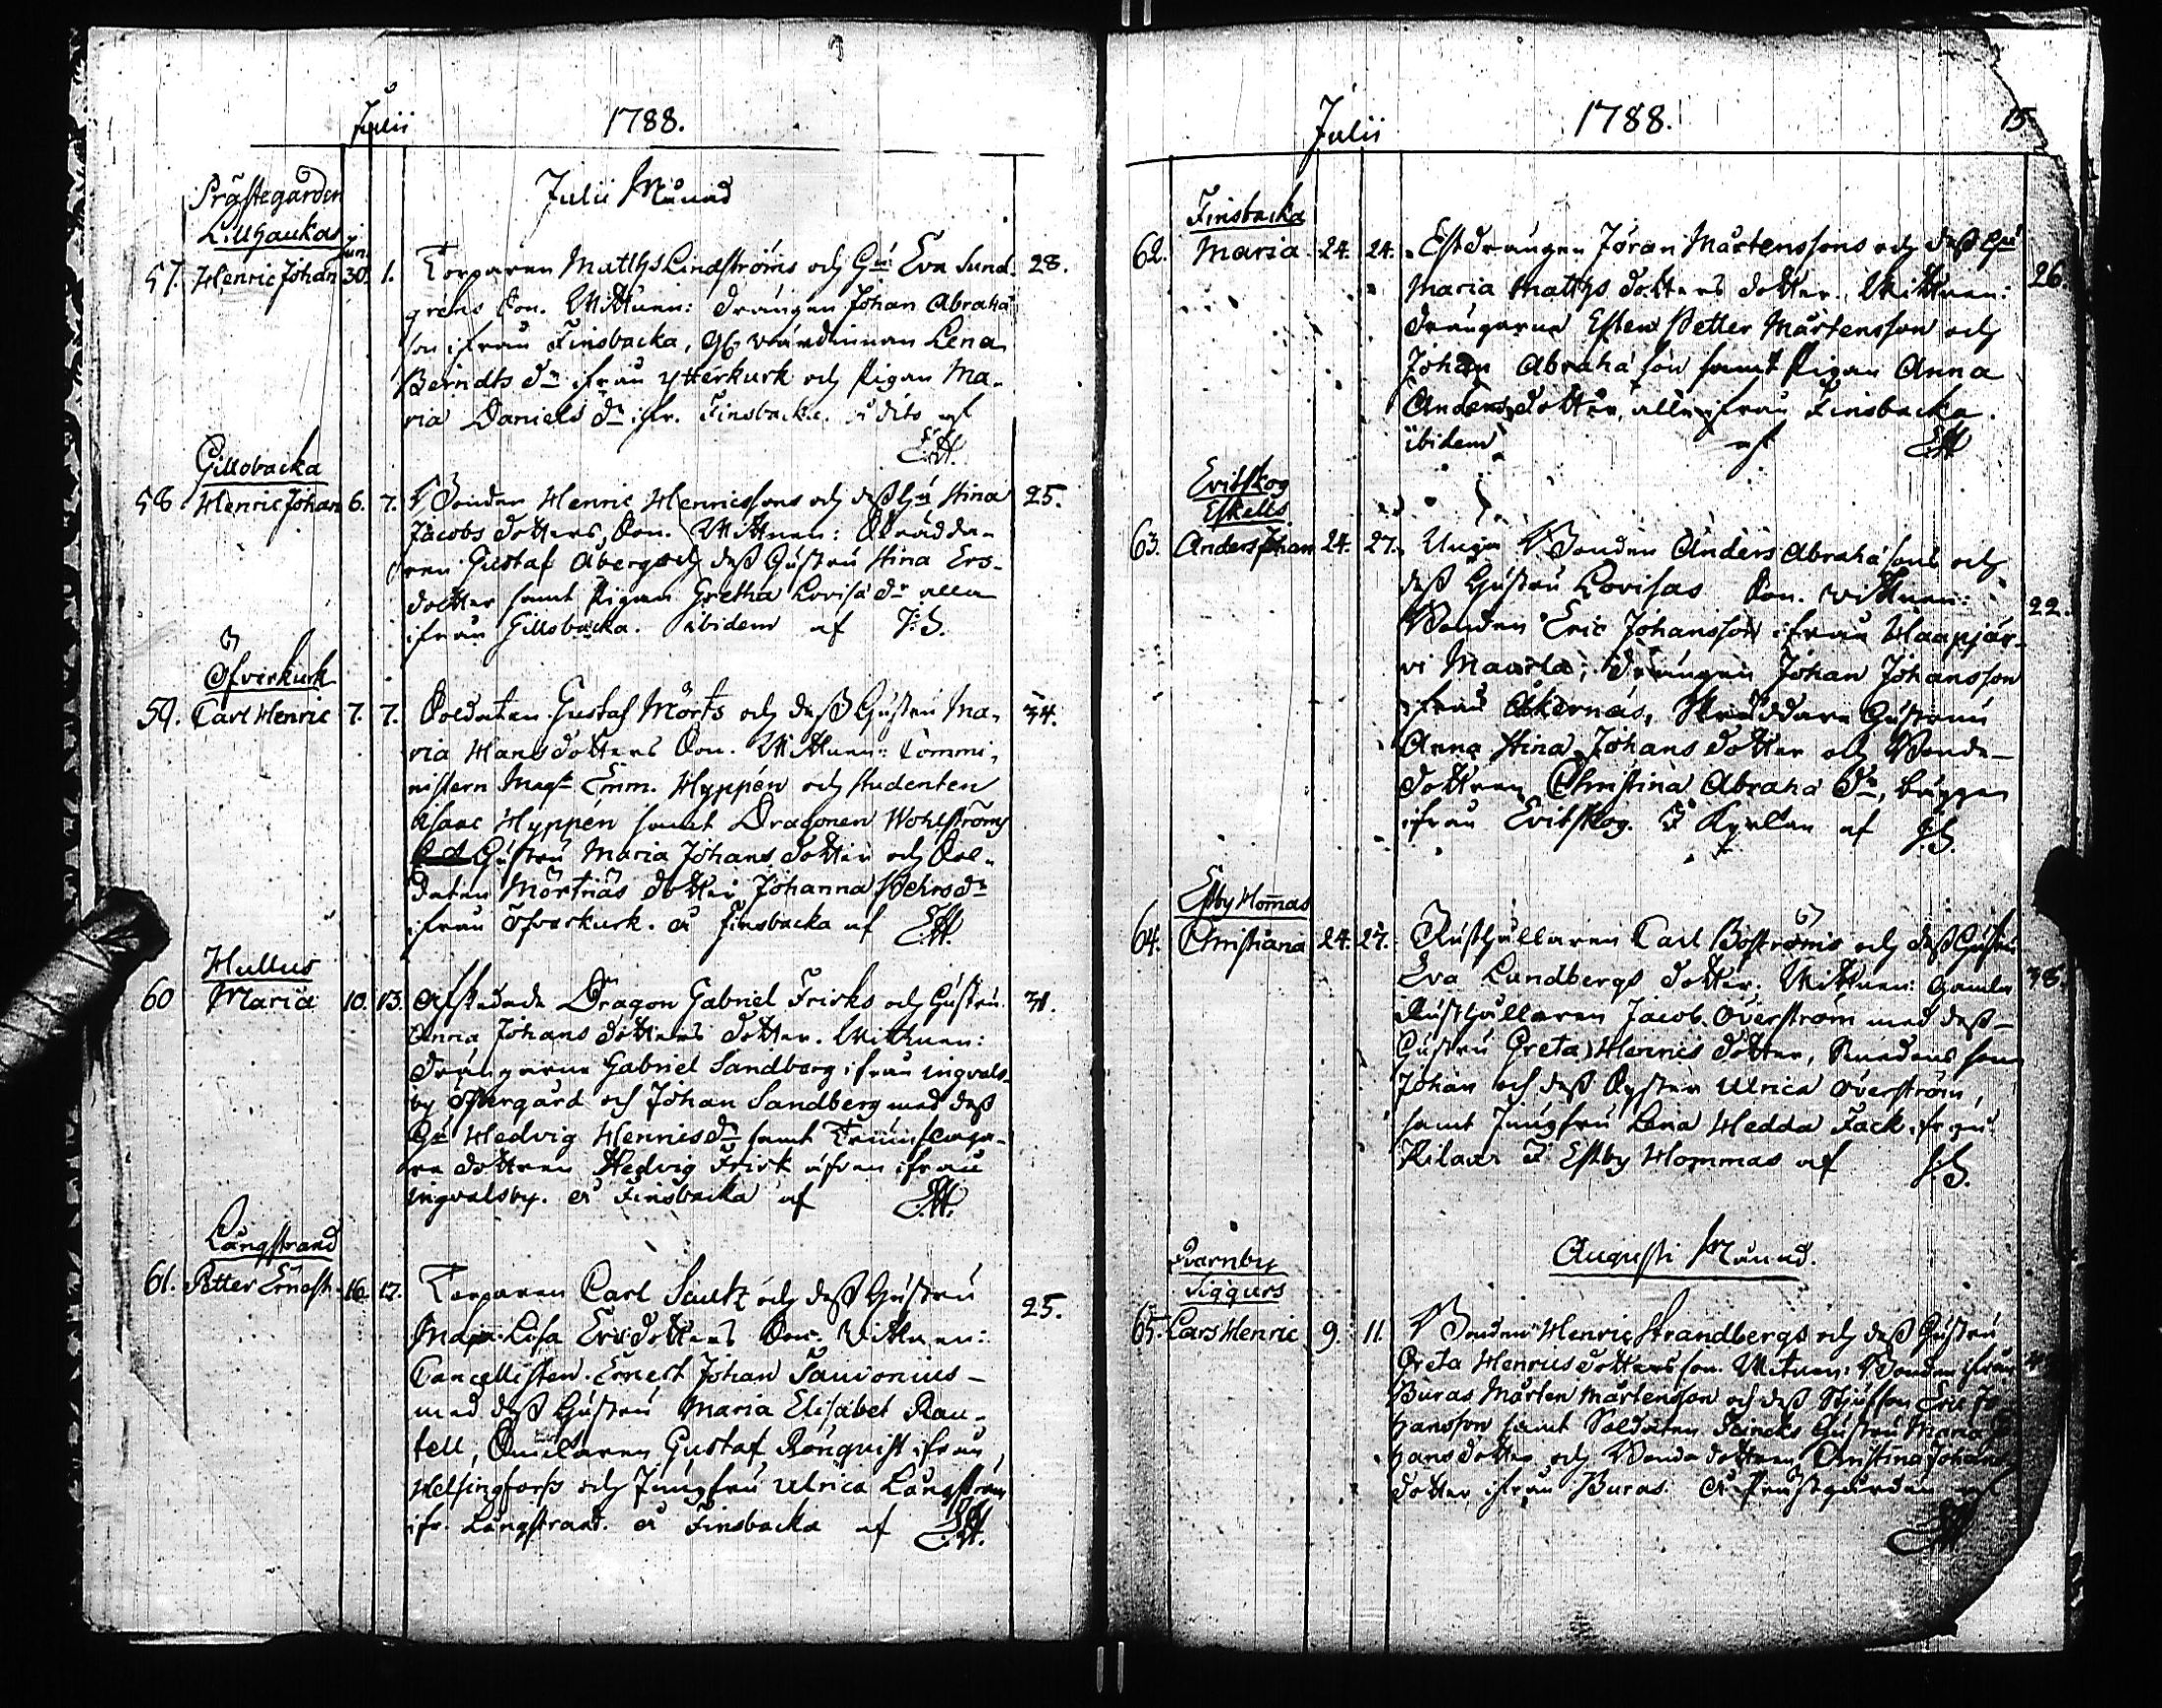 Julii 1788.
Julii Månad
Prästegården
Lillgaukas
Jun.
57. Henric Johan 30. 1. Torparen Matths Lindströms och Hu Eva Sund- 28.
grens Son. Wittnen: Drängen Johan Abraha
son ifrån Finsbacka, wärdinnan Lena
Berndts dr ifrån ytterkurk och Pigan Ma-
ria Daniels dr ifr. Finsbacka. a dito af
E.H.
Gillobacka
58 Henric Johan 6. 7. Bonden Henric Henricssons och dess Hu Stina 25.
Jacobs dotters, Son. Wittnen: Skrädda-
ren Gustaf Åberg och dess Hustru Stina Ers-
dotter samt Pigan Gretha Lovisa dr alla
ifrån Gillobacka. ibidem af J.S.
Öfverkurk
59. Carl Henric 7. 7. Soldaten Gustaf Mörts och dess Hustru Ma- 34.
ria Hansdotters Son. Wittnen: Commi-
nistern Magr Emm. Hyppén och studenten
Isaac Hyppén samt Dragonen Wohlströms
Hustru Maria Johans dotter och Sol-
daten Mörtnäs dotter Johanna Pehrs dr
ifrån Öfverkurk. a Finsbacka af E.H.
Hullus
60 Maria 10. 13. Afskedade Dragon Gabriel Frisks och Hustru 31.
Anna Johans dotters dotter. Wittnen:
Drängarne Gabriel Sandberg ifrån ingvals-
by Östergård och Johan Sandberg med dess
Hu Hedvig Henrics dr samt Trumslaga-
re dottren Hedvig Frisk äfven ifrån
ingvalsby. a Finsbacka af E.H.
Långstrand
61. Petter Ernest 16. 17. Torparen Carl Saltz och dess Hustru 25.
Maja Lisa Ersdotters Son. Wittnen:
Cancellisten Ernest Johan Savonius
med dess Hustru Maria Elisabet Rau-
tell, Gustaf Rönqvist ifrån
Helsingfors och Jungfru Ulrica Långström
ifr. Långstrand. a Finsbacka af E.H.
Julii 1788. 15
Finsbacka
62. Maria 24. 24. Estdrängen Jöran Mårtenssons och dess Hu 26.
Maria Matths dotters dotter. Wittnen:
Drängarne Esten Petter Mårtensson och
Johan Abraha son samt Pigan Anna
Anders dotter, alla ifrån Finsbacka.
ibidem af E.H.
Evitskog
Eskells
63. Anders Johan 24. 27. Unga Bonden Anders Abraha sons och 22.
dess Hustru Lovisas Son. wittnen:
Bonden Eric Johansson ifrån Haapjär-
vi Maarla, Drängen Johan Johansson
ifrån Åkernäs, Skräddare Hustrun
Anna Stina Johans dotter och Bonde-
dottren Christina Abraha dr, bägge
ifrån Evitskog. I Kyrkan af J.S.
Estby Hommas
64. Christiana 24. 27. Rusthållaren Carl Boströms och dess Hustru 38.
Eva Lundbergs dotter. Wittnen: Gamla
Rusthållaren Jacob Överström med dess
Hustru Greta Henrics dotter, Smedens son
Johan och dess Syster Ulrica Överström,
samt Jungfru Lena Hedda Fack ifrån
Kilaus I Estby Hommas af J.S.
Augusti Månad.
Qvarnby
Siggurs
65. Lars Henric 9. 11. Bonden Henric Strandbergs och dess Hustru
Greta Henrics dotters son. Witnen: Bonden ifrån
Buras Mårten Mårtensson och dess Styfson Eric Jo-
hansson samt Soldaten Hustru Maria Jo-
hans dotter och Bonde dottren Christina Johans
dotter ifrån Buras. a Prästgården af
E.H.